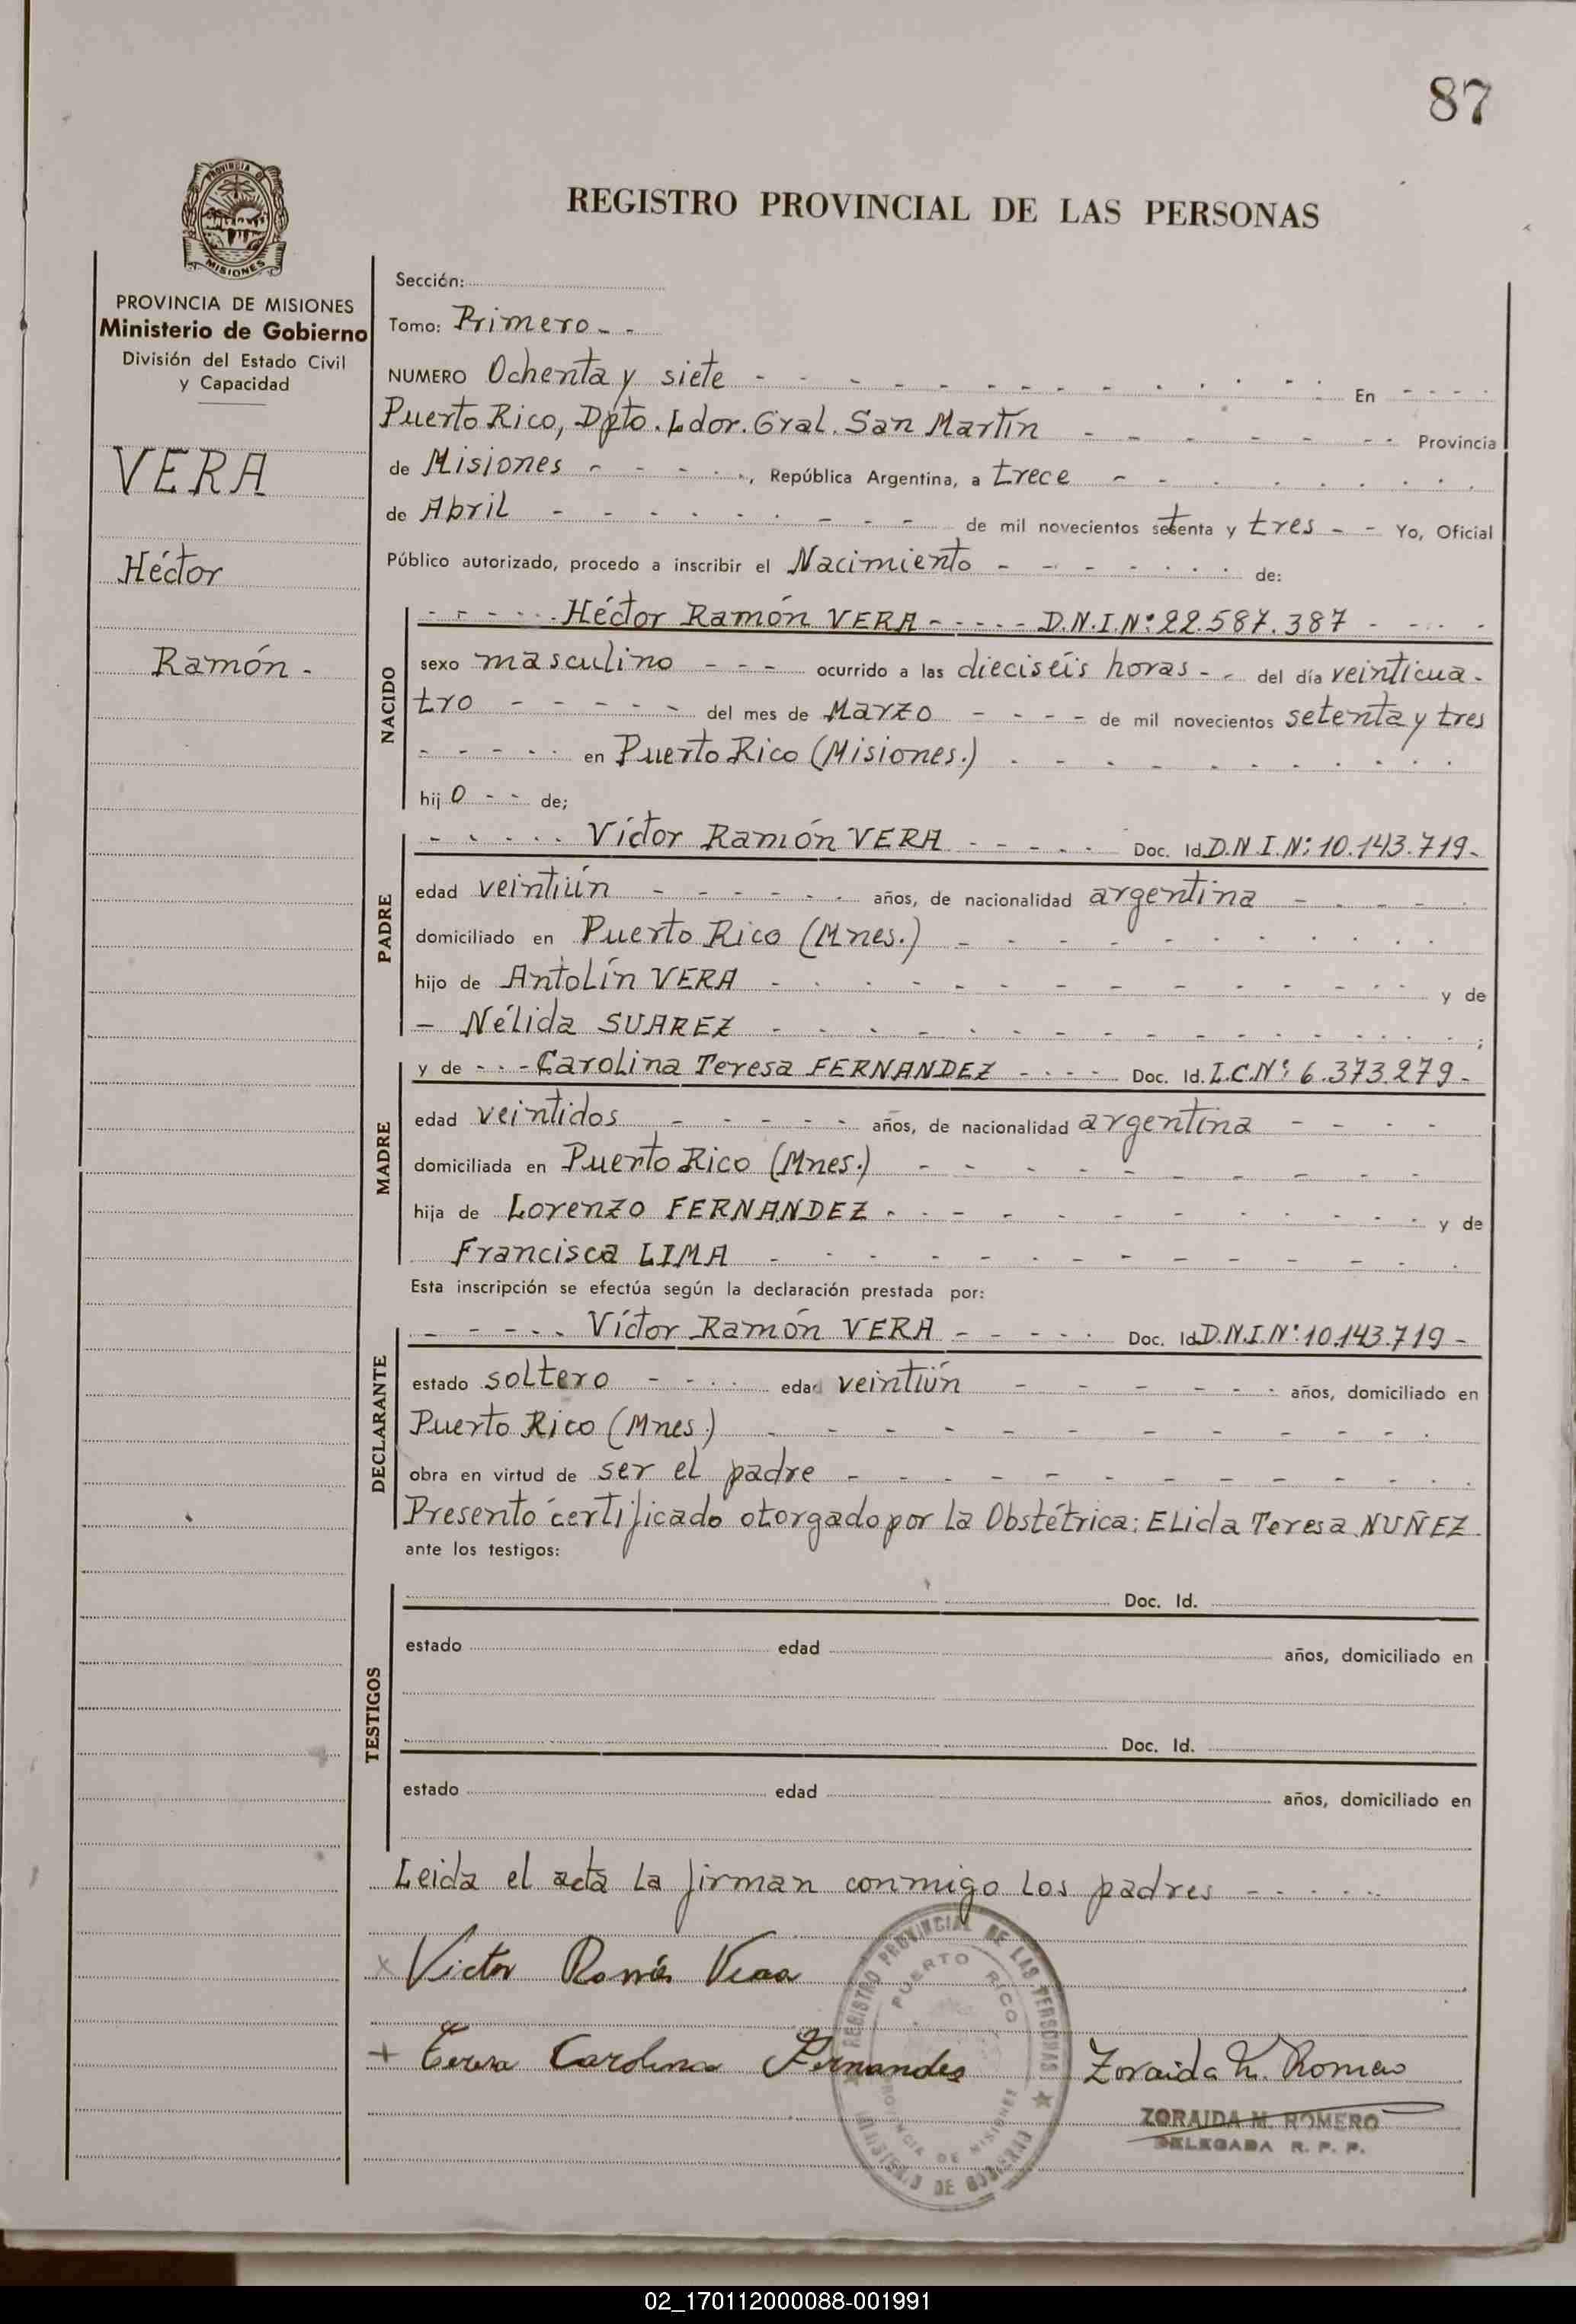 87
PROVINCIA DE
MISIONES
REGISTRO PROVINCIAL DE LAS PERSONAS
PROVINCIA DE MISIONES
Ministerio de Gobierno
División del Estado Civil
y Capacidad
VERA
Héctor
Ramón -
Sección:
Tomo: Primero - -
NUMERO Ochenta y siete - - - - - - - - - - - - - En - - - -
Puerto Rico, Dpto. Ldor. Gral. San Martín - - - - - - - - Provincia
de Misiones - - - - -, República Argentina, a trece - - - - - - - -
de Abril - - - - - - - - - de mil novecientos setenta y tres - - Yo, Oficial
Público autorizado, procedo a inscribir el Nacimiento - - - - - - - de:
NACIDO
- - - - - Héctor Ramón VERA - - - - - D.N.I.Nº: 22.587.387 - - - -
sexo masculino - - - ocurrido a las dieciséis horas - - del día veinticua-
tro - - - - - - del mes de Marzo - - - - de mil novecientos setenta y tres
- - - - - en Puerto Rico (Misiones.) - - - - - - - - -
hijo - - de;
PADRE
- - - - - Víctor Ramón VERA - - - - - Doc. Id. D.N.I.Nº: 10.143.719-
edad veintiún - - - - - - - años, de nacionalidad argentina - - - - -
domiciliado en Puerto Rico (Mnes.) - - - - - - - - - -
hijo de Antolín VERA - - - - - - - - - - - - - y de
- Nélida SUAREZ - - - - - - - - - - - - - - ;
MADRE
y de - - - Carolina Teresa FERNANDEZ - - - - Doc. Id. L.C.Nº: 6.373.279-
edad veintidos - - - - - - años, de nacionalidad argentina - - - -
domiciliada en Puerto Rico (Mnes.) - - - - - - - - -
hija de Lorenzo FERNANDEZ - - - - - - - - - - - y de
Francisca LIMA - - - - - - - - - - - - -
Esta inscripción se efectúa según la declaración prestada por:
DECLARANTE
- - - - - Víctor Ramón VERA - - - - - Doc. Id. D.N.I.Nº: 10.143.719 -
estado soltero - - - - edad veintiún - - - - - - - años, domiciliado en
Puerto Rico (Mnes.) - - - - - - - - - - - -
obra en virtud de ser el padre - - - - - - - - - - - -
Presentó certificado otorgado por la Obstétrica: Elida Teresa NUÑEZ.
ante los testigos:
TESTIGOS
Doc. Id.
estado edad años, domiciliado en
Doc. Id.
estado edad años, domiciliado en
Leida el acta la firman conmigo los padres - - - - - -
x Victor Ramón Vera
+ Teresa Carolina Fernandes
Zoraida M. Romero
ZORAIDA M. ROMERO
DELEGADA R. P. P.
REGISTRO PROVINCIAL DE LAS PERSONAS
PUERTO RICO
PROVINCIA DE MISIONES
MINISTERIO DE GOBIERNO
02_170112000088-001991